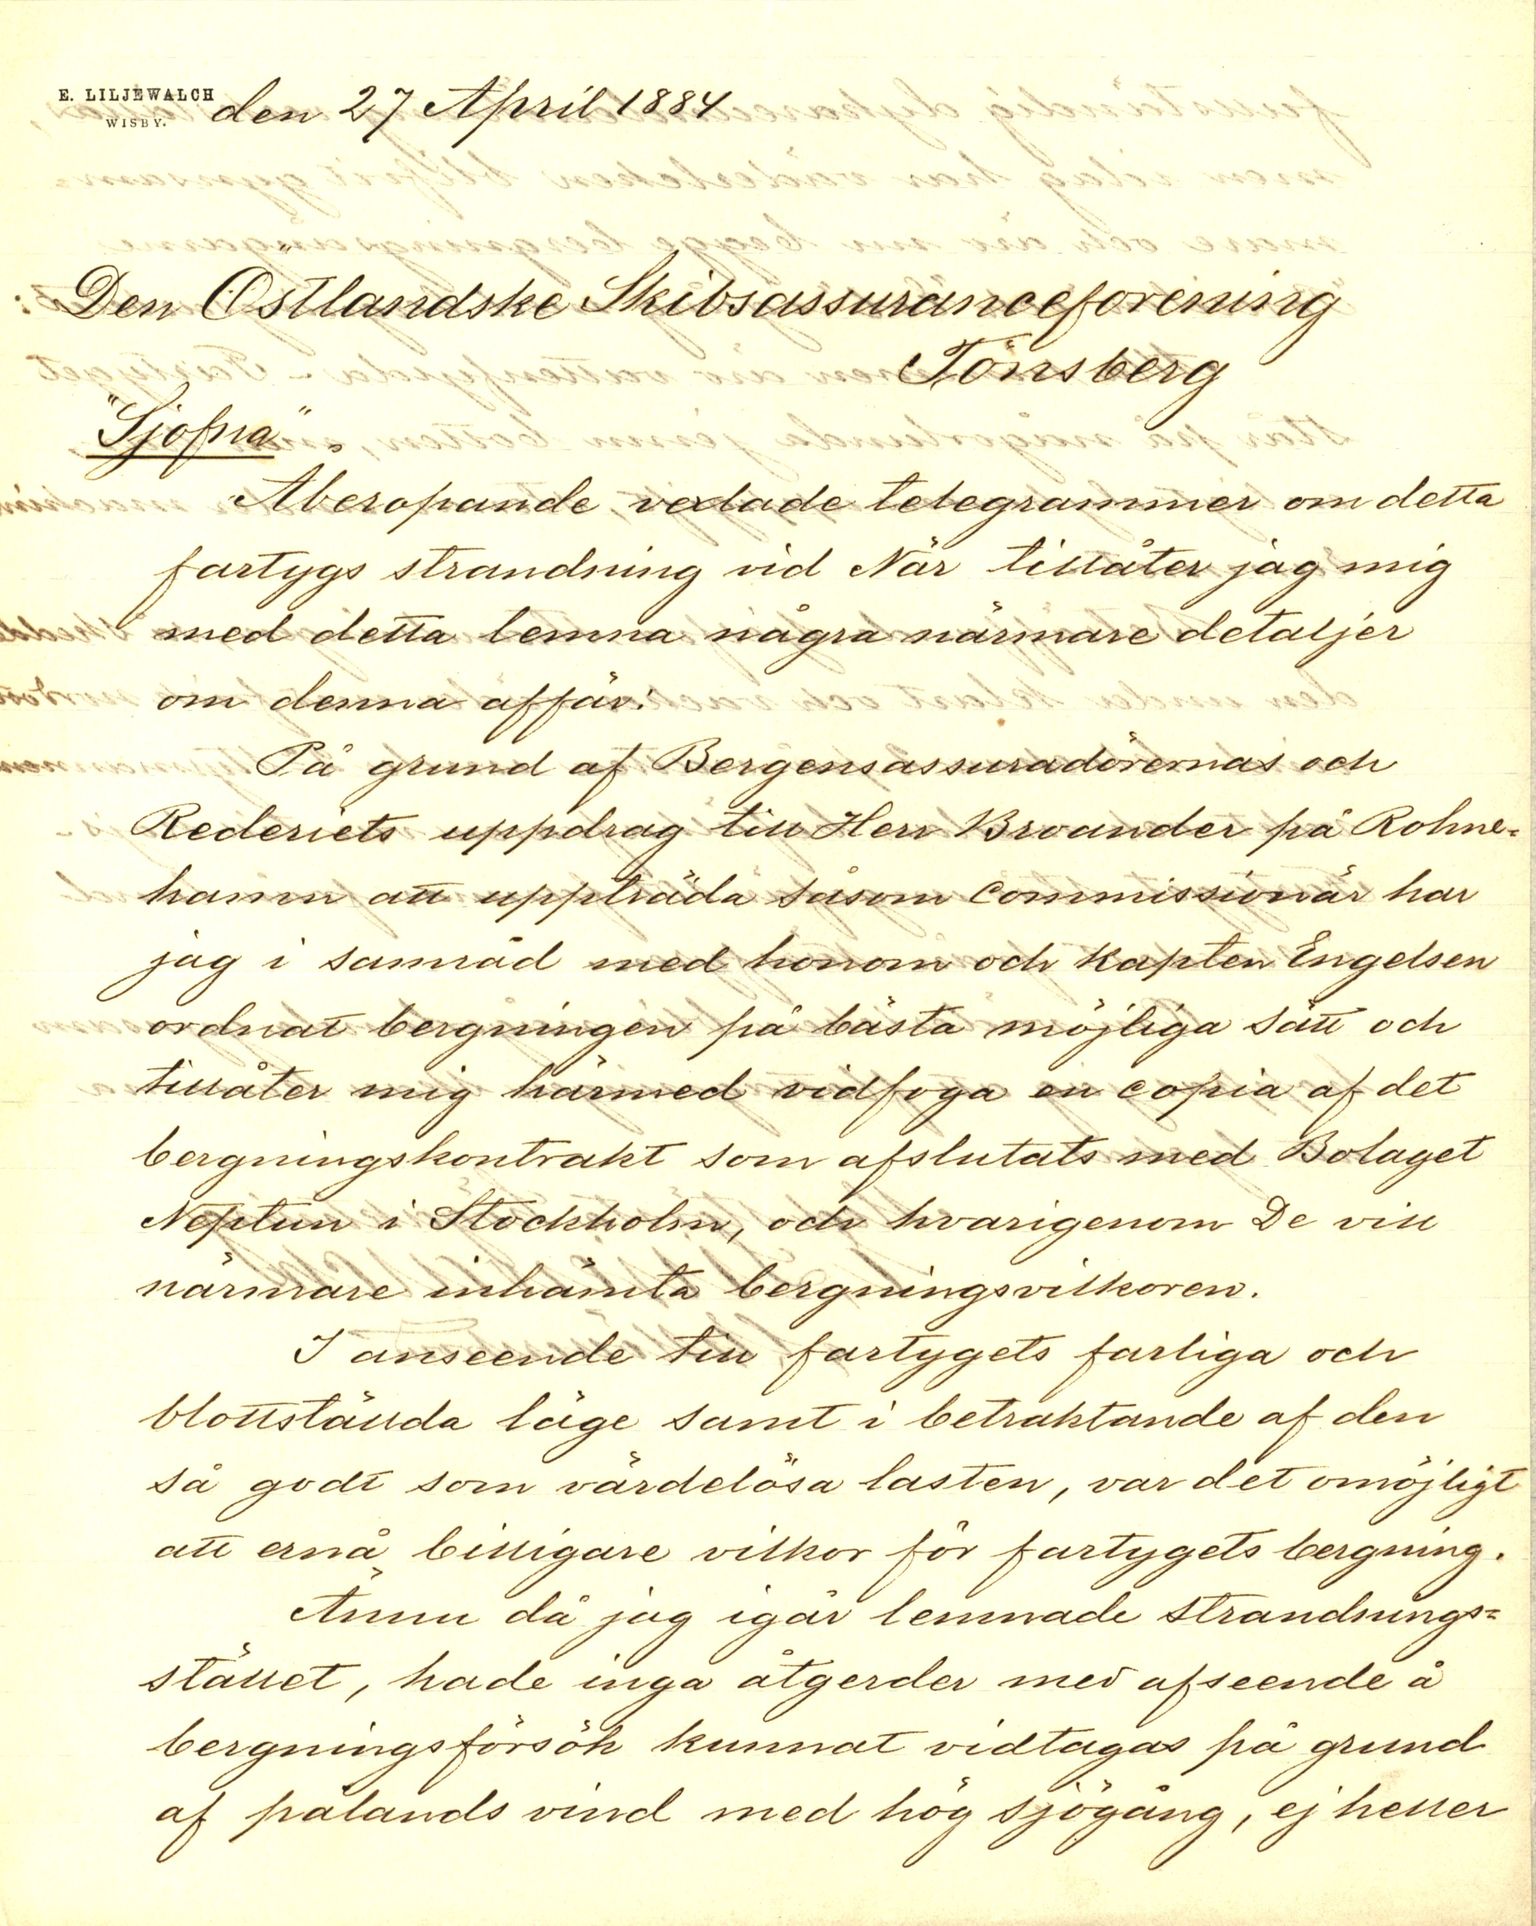 E. LILJEWALCH
WISBY.
den 27 April 1884
Den Östlandske Skibsassuranceforening
Tönsberg
"Sjofna".
Åberopande vexlade telegrammer om detta
fartygs strandning vid När tillåter jag mig
med detta lemna några närmare detaljer
om denna affär.
På grund af Bergensassuradörernas och
Rederiets uppdrag till Herr Broander på Rohne=
hamn att uppträda såsom commissionär har
jag i samråd med honom och Kapten Engelsen
ordnat bergningen på bästa möjliga sätt och
tillåter mig härmed vidfoga en copia af det
bergningskontrakt som afslutats med Bolaget
Neptun i Stockholm, och hvarigenom De vill
närmare inhämta bergningsvilkoren.
I anseende till fartygets farliga och
blottställda läge samt i betraktande af den
så godt som värdelösa lasten, var det omöjligt
att ernå billigare vilkor för fartygets bergning.
Ännu då jag igår lemnade strandnings=
stället, hade inga åtgerder med afseende å
bergningsförsök kunnat vidtagas på grund
af pålands vind med hög sjögång, ej heller